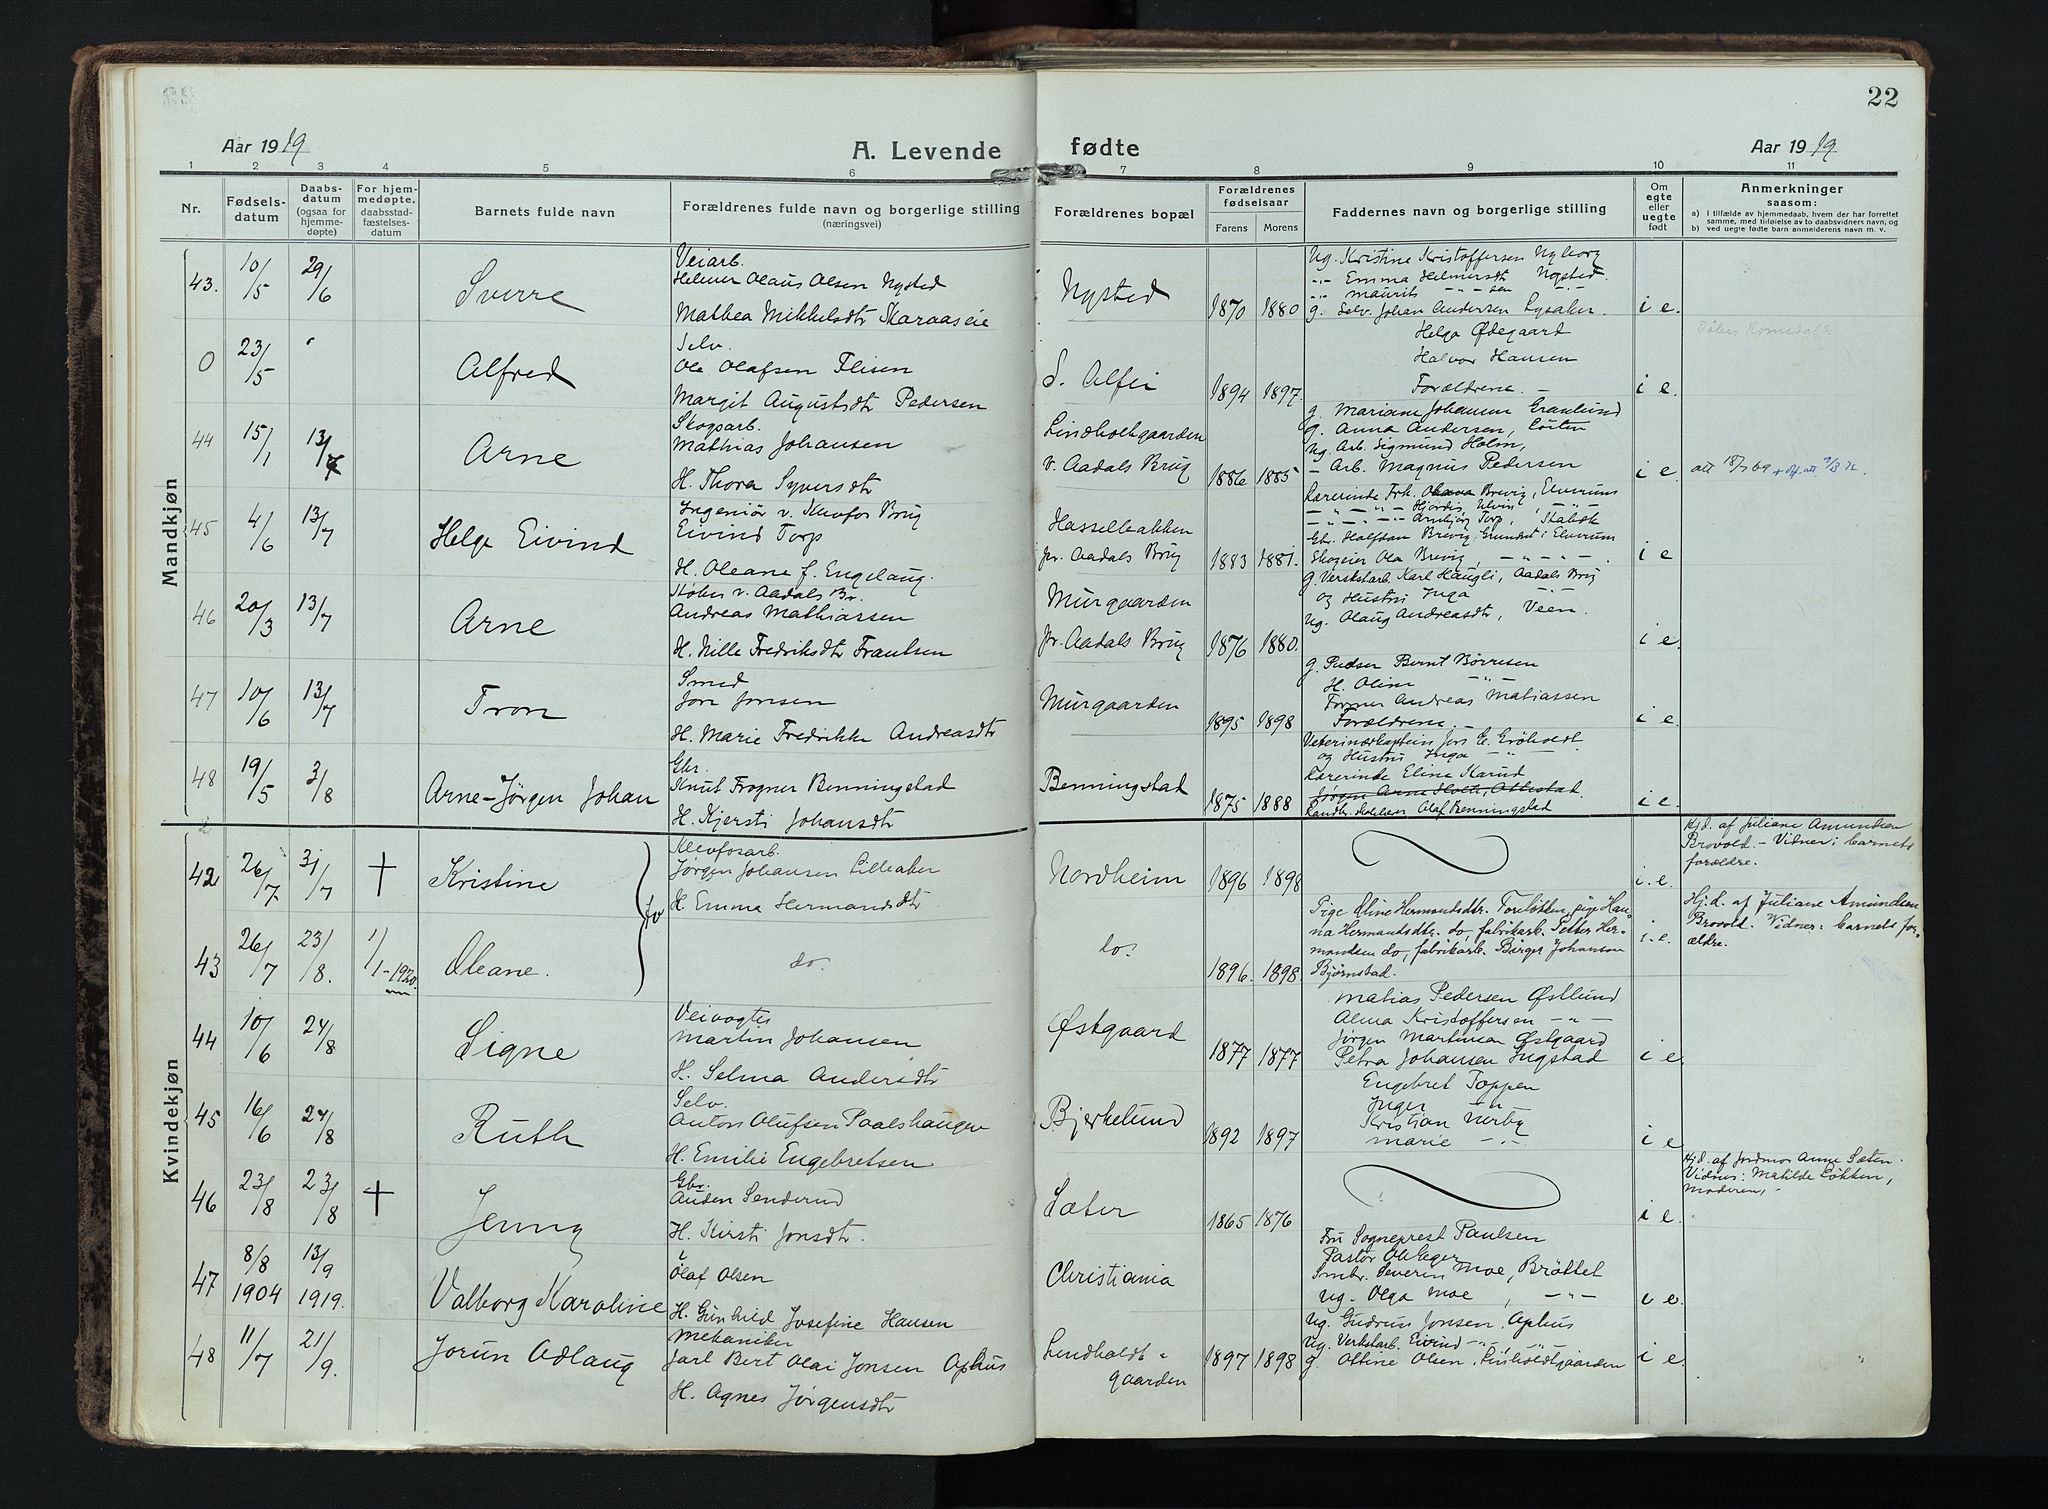 22
Aar 1919
A. Levende fødte
Aar 1919
1 2 3 4 5 6 7 8 9 10 11
Nr.
Fødselsdatum
Daabsdatum (ogsaa for hjemmedøpte)
For hjemmedøpte, daabsstadfæstelsesdatum
Barnets fulde navn
Forældrenes fulde navn og borgerlige stilling (næringsvei)
Forældrenes bopæl
Forældrenes fødselsaar
Farens Morens
Faddernes navn og borgerlige stilling
Om egte eller uegte født
Anmerkninger saasom:
a) I tilfælde av hjemmedaab, hvem der har forrettet samme, med tilføielse av to daabsvidners navn, og
b) ved uegte fødte barn anmelderens navn m. v.
Mandkjøn
43. 10/5 29/6 Sverre
Veiarb.
Helmer Olaus Olsen Nysted
Mathea Mikkelsdtr Skaraaseie
Nysted 1870 1880
Ug. Kristine Kristoffersen Nyborg
-"- Emma Helmersdt Nysted.
-"- Maurits -"- sen -"-
g. Selv. Johan Andersen Lysaker.
i e.
0 23/5 Alfred
Selv.
Ole Olafsen Flisen
Margit Augustsdtr Pedersen
S. Alfei 1894 1897
Helga Ødegaard
Halvor Hansen
Forældrene -
i e.
44 15/1 13/7 Arne
Skogsarb.
Mathias Johansen
H. Thora Syversdtr
Lindholtgaarden
v. Aadals Brug 1886 1885
g. Mariane Johansen Granlund
g. Anna Andersen, Løiten
Ug. Arb. Sigmund Holm,
- Arb. Magnus Pedersen
i e.
45 4/6 13/7 Helge Eivind
Ingeniør v. Klevfos Brug
Eivind Torp
H. Oleane f. Engelaug.
Hasselbakken
pr. Aadals Brug 1883 1881.
Lærerinde Frk. Brevig, Elverum
Gbr. Halfdan Brevig, Grundset i Elverum
Skogeier Ola Brevig, -"- -"-
i e
46 20/3 13/7 Arne
Støber v. Aadals Br.
Andreas Mathiassen
H. Nille Fredriksdtr Frantsen
Murgaarden
pr. Aadals Brug 1876 1880.
g. Verkstarb. Karl Haugli, Aadals Brug
og Hustru Inga -"-
Ug. Olaug Andreasdtr, Veen.
i e.
47 10/6 13/7 Tron
Smed
Jon Jonsen
H. Marie Fredrikke Andreasdtr
Murgaarden 1895 1898
g. Pudser Bernt Børresen
H. Oline -"-
Former Andreas Matiassen
Forældrene. -
i e.
48 19/5 3/8 Arne-Jørgen Johan
Gbr.
Knut Frogner Benningstad
H. Kjersti Johansdtr
Benningstad 1875 1888
Veterinærkaptein Jørs E. Grøholdt
og Hustru Inga -"-
Lærerinde Eline Karud
Jørgen Arne Holte, Ottestad
Landh. Olaf Benningstad
i e.
Kvindekjøn
42 26/7 31/7 † Kristine
Klevfosarb.
Jørgen Johansen Lilleaker
H. Emma Hermandsdtr
Nordheim 1896 1898
i. e.
Hj.d. af Juliane Amundsen
Brovold. - Vidner: barnets
forældre.
43 26/7 23/8. 1/1-1920. Oleane.
do.
do. 1896. 1898
Pige Oline Hermandsdtr. Toreløkken, pige Han-
na Hermandsdtr. do, fabrikarb. Petter Her-
mandsen do, fabrikarb. Birger Johansen
Bjørnstad.
i. e.
Hj.d. af Juliane Amundsen
Brovold. Vidner: barnets for-
ældre.
44 10/6 24/8 Signe
Veivogter
Martin Johansen
H. Selma Andersdtr
Østgaard 1877 1877
Matias Pedersen Østlund
Alma Kristoffersen -"-
Jørgen Martinsen Østgaard
Petra Johansen Ingstad
i e.
45 16/6 24/8 Ruth
Selv.
Anton Olufsen Paalshaugen
H. Emilie Engebretsen
Bjerkelund 1892 1897
Engebret Toppen
Inger -"-
Kristian Nerby
Marie -"-
i e
46 23/8 23/8 † Jenny
Gbr.
Auden Senderud
H. Kirsti Jonsdtr.
Sæter 1865 1876
i e.
Hj.d. af Jordmor Anne Sæten.
Vidner: Matilde Løkken,
Moderen.
47 8/8 1904 13/9 1919. Valborg Karoline
Olaf Olsen
H. Gunhild Josefine Hansen
Christiania
Fru Sogneprest Paulsen
Pastor Ole Eger
Smbr. Severin Moe, Brøttet
Ug. Olga Moe, -"-
i e.
48 11/7 21/9. Jorun Adlaug
Mekaniker
Jarl Bert Olai Jonsen Aphus
H. Agnes Jørgensdtr
Lindholdt-
gaarden 1897 1898
Ug. Gudrun Jonsen, Aphus
Ug. Verkstarb. Eivind -"-
g. Ottine Olsen, Linholdtgaarden
i e.